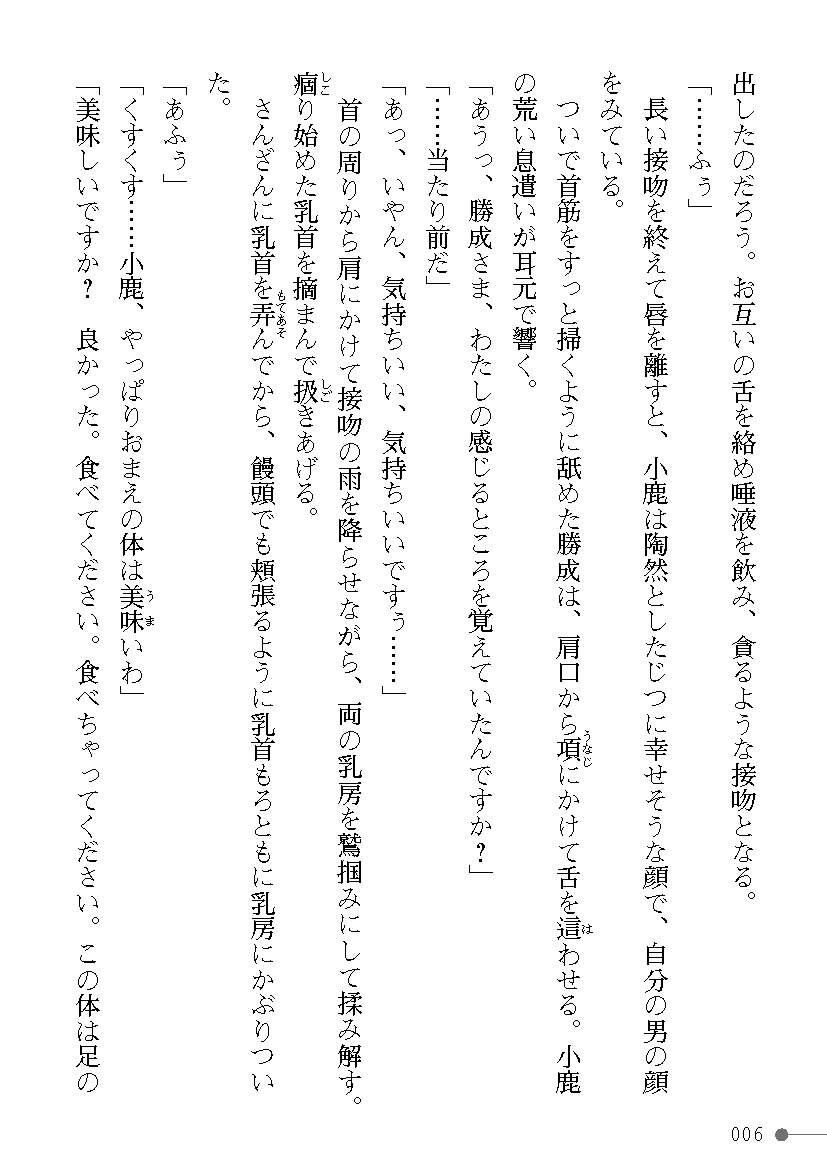 出したのだろう。お互いの舌を絡め唾液を飲み、貪るような接吻となる。
「……ふぅ」
長い接吻を終えて唇を離すと、小鹿は陶然としたじつに幸せそうな顔で、自分の男の顔
をみている。
ついで首筋をすっと掃くように舐めた勝成は、肩口から項にかけて舌を這わせる。小鹿
の荒い息遣いが耳元で響く。
「あうっ、勝成さま、わたしの感じるところを覚えていたんですか？」
「……当たり前だ」
「あっ、いやん、気持ちいい、気持ちいいですぅ……」
首の周りから肩にかけて接吻の雨を降らせながら、両の乳房を鷲掴みにして揉み解す。
痼り始めた乳首を摘まんで扱きあげる。
さんざんに乳首を弄んでから、饅頭でも頬張るように乳首もろともに乳房にかぶりつい
た。
「あふぅ」
「くすくす……小鹿、やっぱりおまえの体は美味いわ」
「美味しいですか？　良かった。食べてください。食べちゃってください。この体は足の
006